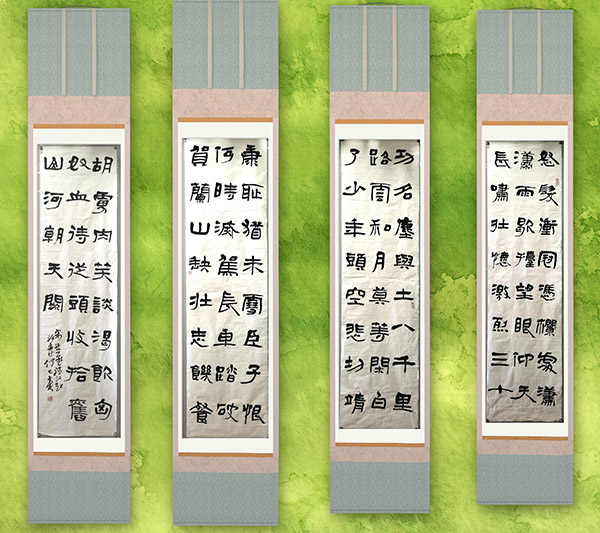 怒髮衝冠憑欄處瀟
瀟雨歇擡望眼仰天
長嘯壯懷激烈三十
功名塵與土八千里
路雲和月莫等閑白
了少年頭空悲切靖
康恥猶未雪臣子恨
何時滅駕長車踏破
賀蘭山缺壯志饑餐
胡虜肉笑談渴飲匈
奴血待從頭收拾舊
山河朝天闕